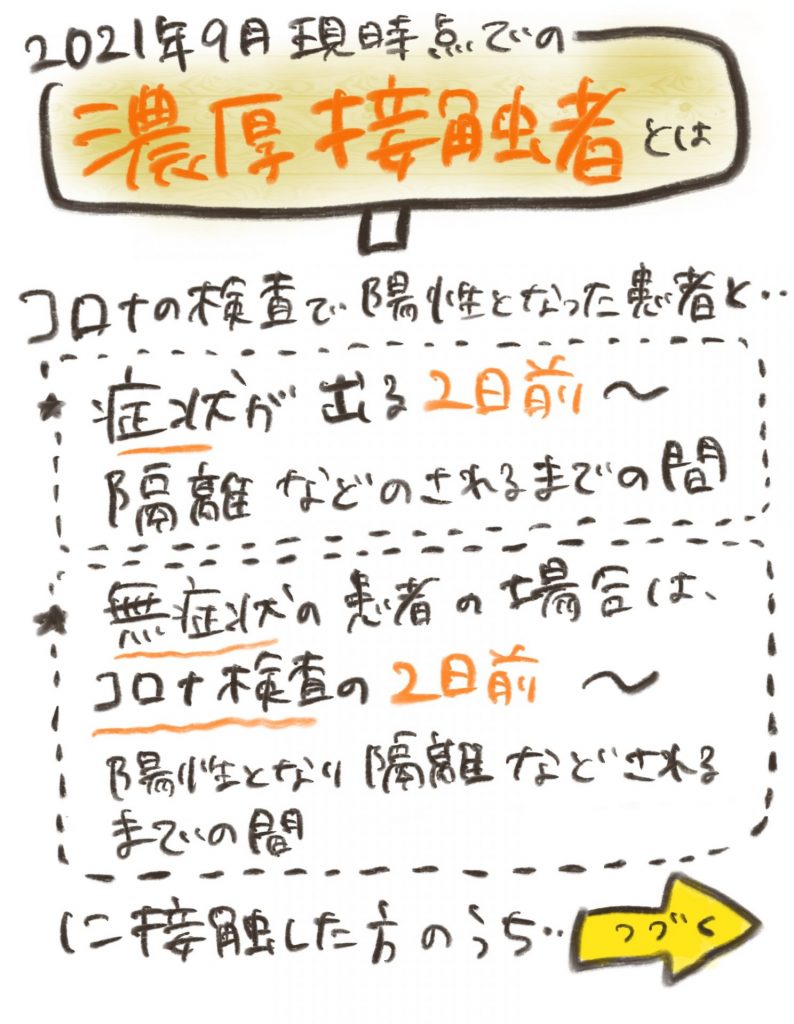 2021年9月現時点での
濃厚接触者とは
コロナの検査で陽性となった患者と‥
★症状が出る2日前〜
隔離などのされるまでの間
★無症状の患者の場合は、
コロナ検査の2日前〜
陽性となり隔離などされる
までの間
に接触した方のうち‥
つづく